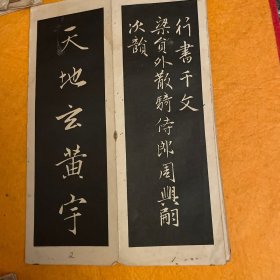 行書千文
梁員外散騎侍郎周興嗣
次韻
天地玄黃宇